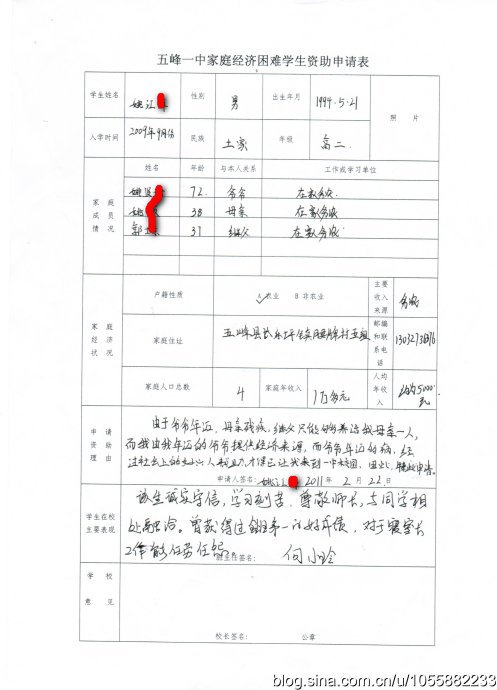 五峰一中家庭经济困难学生资助申请表
学生姓名 姚江 性别 男 出生年月 1994.5.21 照片
入学时间 2009年9月份 民族 土家 年级 高二
家庭成员情况 姓名 年龄 与本人关系 工作或学习单位
姚 72 爷爷 在家务农
姚 38 母亲 在家务农
郭 37 继父 在家务农
家庭经济状况 户籍性质 A 农业 B 非农业 主要收入来源 务农
家庭住址 五峰县长乐坪镇腰牌村五组 邮编和联系电话
家庭人口总数 4 家庭年收入 1万多元 人均年收入
申请资助理由 由于爷爷年迈，母亲残疾，继父只能够养活我母亲一人，
而我由我年迈的爷爷提供经济来源，而爷爷年迈的病，经
过社会上的好心人 才得已让我来到一中校园，因此，特此申请。
申请人签名：姚江 2011 年 2 月 22 日
学生在校主要表现 该生诚实守信，学习刻苦，尊敬师长，与同学相
处融洽。曾获得过 第一的好成绩，对于寝室长
工作能任劳任怨。
班主任签名：向小玲
学校意见
校长签名： 公章
blog.sina.com.cn/u/1055882233